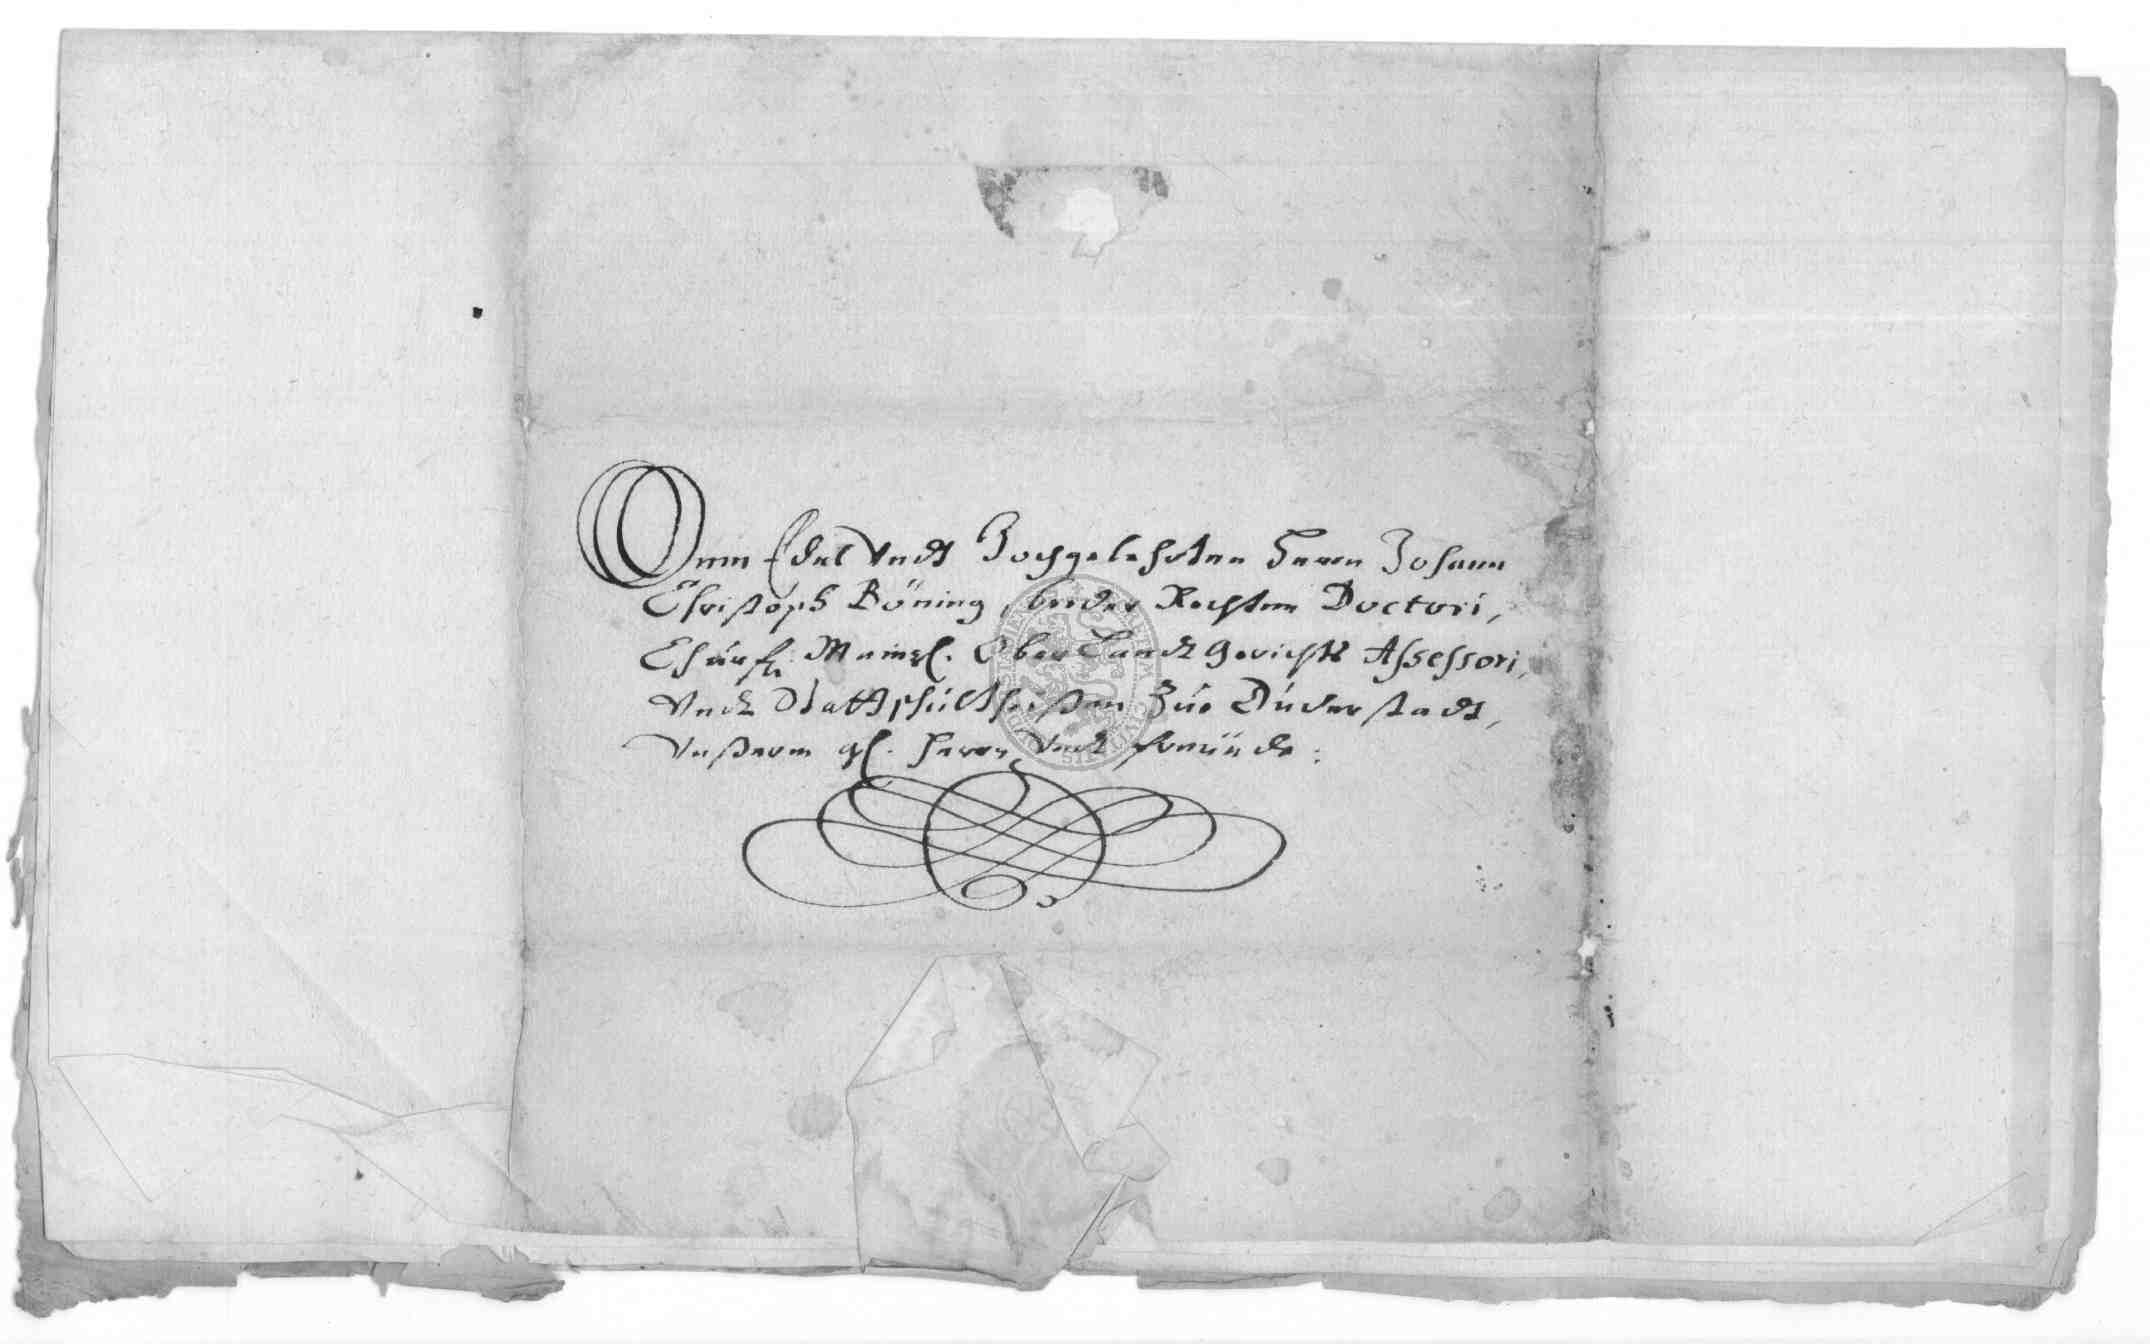 Dem Edel Vndt Hochgelehrten Herrn Johann
Christoph Böning, beider Rechten Doctori,
Churfl. Maintzl. Ober Landt Gerichts Assessori,
Vndt Stattschültheißen Zue Düderstadt,
Vnßerm gl. Herrn Vndt freünde.